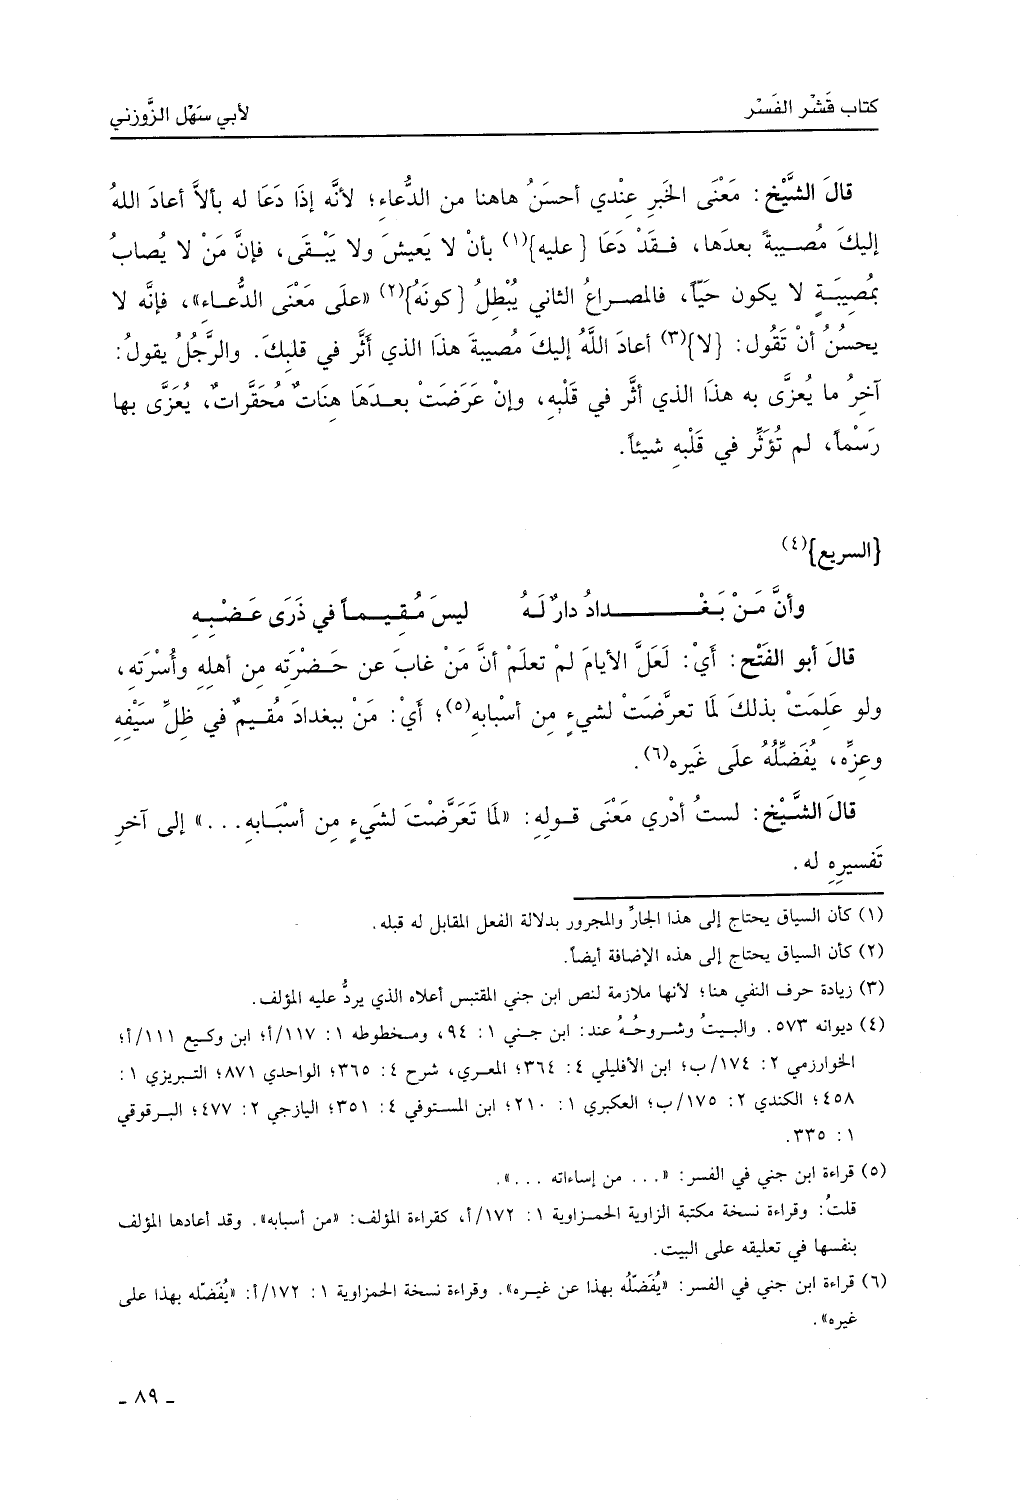 كتاب قَشْر الفَسْر
لأبي سَهْل الزَّوزني
قالَ الشَّيْخ: مَعْنَى الخَبرِ عِنْدي أحسَنُ هاهنا من الدُّعاءِ؛ لأنَّه إذَا دَعَا له بألاَّ أعادَ اللهُ
إليكَ مُصيبةً بعدَها، فـقَدْ دَعَا {عليه}(١) بأنْ لا يَعيشَ ولا يَبْـقى، فإنَّ مَنْ لا يُصابُ
بمُصِيبَـةٍ لا يكون حَيّاً، فالمصراعُ الثاني يُبْطِلُ {كونَهُ}(٢) «علَى مَعْنَى الدُّعـاء»، فإنَّه لا
يحسُنُ أنْ تَقُول: {لا}(٣) أعادَ اللَّهُ إليكَ مُصيبةَ هذَا الذي أثَّر في قلبِكَ. والرَّجُلُ يقولُ:
آخِرُ ما يُعزَّى به هذَا الذي أثَّر في قَلْبِه، وإنْ عَرَضَتْ بعـدَهَا هِنَاتٌ مُحَقَّرات، يُعَزَّى بها
رَسْماً، لم تُؤَثِّر في قَلْبهِ شيئاً.
{السريع}(٤)
وأنَّ مَـنْ بَـغْـــــــــدادُ دارٌ لَـهُ ليسَ مُـقِـيـمـاً في ذَرَى عَـضْـبِـهِ
قالَ أبو الفَتْح: أيْ: لَعَلَّ الأيامَ لمْ تعلَمْ أنَّ مَنْ غابَ عن حَـضْرَتِه مِن أهلِهِ وأُسْرَتِه،
ولو عَلِمَتْ بذلكَ لَما تعرَّضَتْ لشيءٍ مِن أسْبابِه(٥)؛ أيْ: مَنْ ببغدادَ مُقيمٌ في ظِلِّ سَيْفِهِ
وعِزِّه، يُفَضِّلُهُ علَى غَيره(٦).
قالَ الشَّيْخ: لستُ أدْري مَعْنَى قـولِهِ: «لَمَا تَعَرَّضْتَ لشَيءٍ مِن أسْبَـابهِ...» إلى آخرِ
تَفسيرِهِ له.
(١) كأن السياق يحتاج إلى هذا الجارِّ والمجرور بدلالة الفعل المقابل له قبله.
(٢) كأن السياق يحتاج إلى هذه الإضافة أيضاً.
(٣) زيادة حرف النفي هنا؛ لأنها ملازمة لنص ابن جني المقتبس أعلاه الذي يردُّ عليه المؤلف.
(٤) ديوانه ٥٧٣. والبيتُ وشروحُـهُ عند: ابن جـني ١: ٩٤، ومـخطوطه ١: ١١٧/أ؛ ابن وكـيع ١١١/أ؛
الخوارزمي ٢: ١٧٤/ب؛ ابن الأفليلي ٤: ٣٦٤؛ المعـري، شرح ٤: ٣٦٥؛ الواحدي ٨٧١؛ التبريزي ١:
٤٥٨؛ الكندي ٢: ١٧٥/ب؛ العكبري ١: ٢١٠؛ ابن المستوفي ٤: ٣٥١؛ اليازجي ٢: ٤٧٧؛ البـرقوقي
١: ٣٣٥.
(٥) قراءة ابن جني في الفسر: «... من إساءاته ...».
قلتُ: وقراءة نسخة مكتبة الزاوية الحمـزاوية ١: ١٧٢/أ، كقراءة المؤلف: «من أسبابه». وقد أعادها المؤلف
بنفسها في تعليقه على البيت.
(٦) قراءة ابن جني في الفسر: «يُفَضّلُه بهذا عن غيـره». وقراءة نسخة الحمزاوية ١: ١٧٢/أ: «يُفَضّله بهذا على
غيره».
ـ ٨٩ ـ